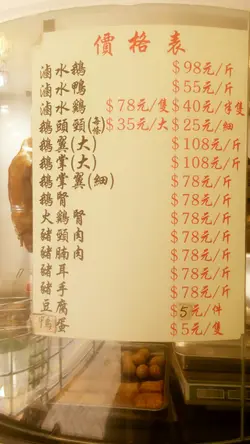 價格表
滷水鵝 $98元/斤
滷水鴨 $55元/斤
滷水鷄 $78元/隻 $40元/半隻
鵝頭頸(每條) $35元/大 $25元/細
鵝翼(大) $108元/斤
鵝掌(大) $108元/斤
鵝掌翼(細) $78元/斤
鵝腎 $78元/斤
火鷄腎 $78元/斤
豬頭肉 $78元/斤
豬腩肉 $78元/斤
豬耳 $78元/斤
豬手 $78元/斤
豆腐 $5元/件
蛋 $5元/隻